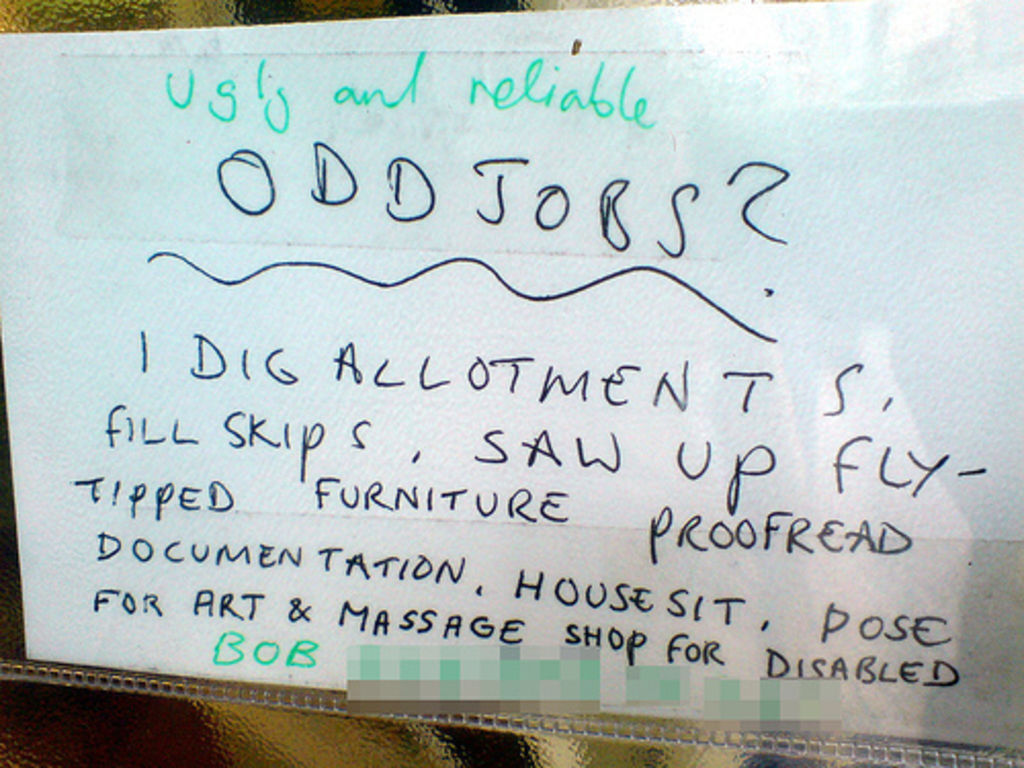 Ugly and reliable
ODD JOBS?
I DIG ALLOTMENTS,
FILL SKIPS, SAW UP FLY-
TIPPED FURNITURE PROOFREAD
DOCUMENTATION, HOUSE SIT, POSE
FOR ART & MASSAGE SHOP FOR DISABLED
BOB